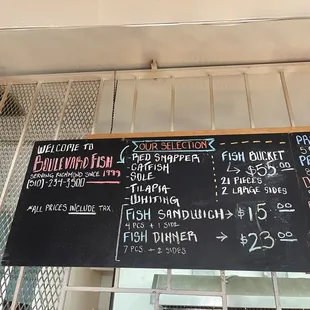 WELCOME TO
BOULEVARD FISH
SERVING RICHMOND SINCE 1999
(510)-234-3500
*ALL PRICES INCLUDE TAX
OUR SELECTION
-RED SNAPPER
-CATFISH
-SOLE
-TILAPIA
-WHITING
FISH SANDWICH → $15.00
4 PCS + 1 SIDE
FISH DINNER → $23.00
7 PCS + 2 SIDES
FISH BUCKET
→ $55.00
21 PIECES
2 LARGE SIDES